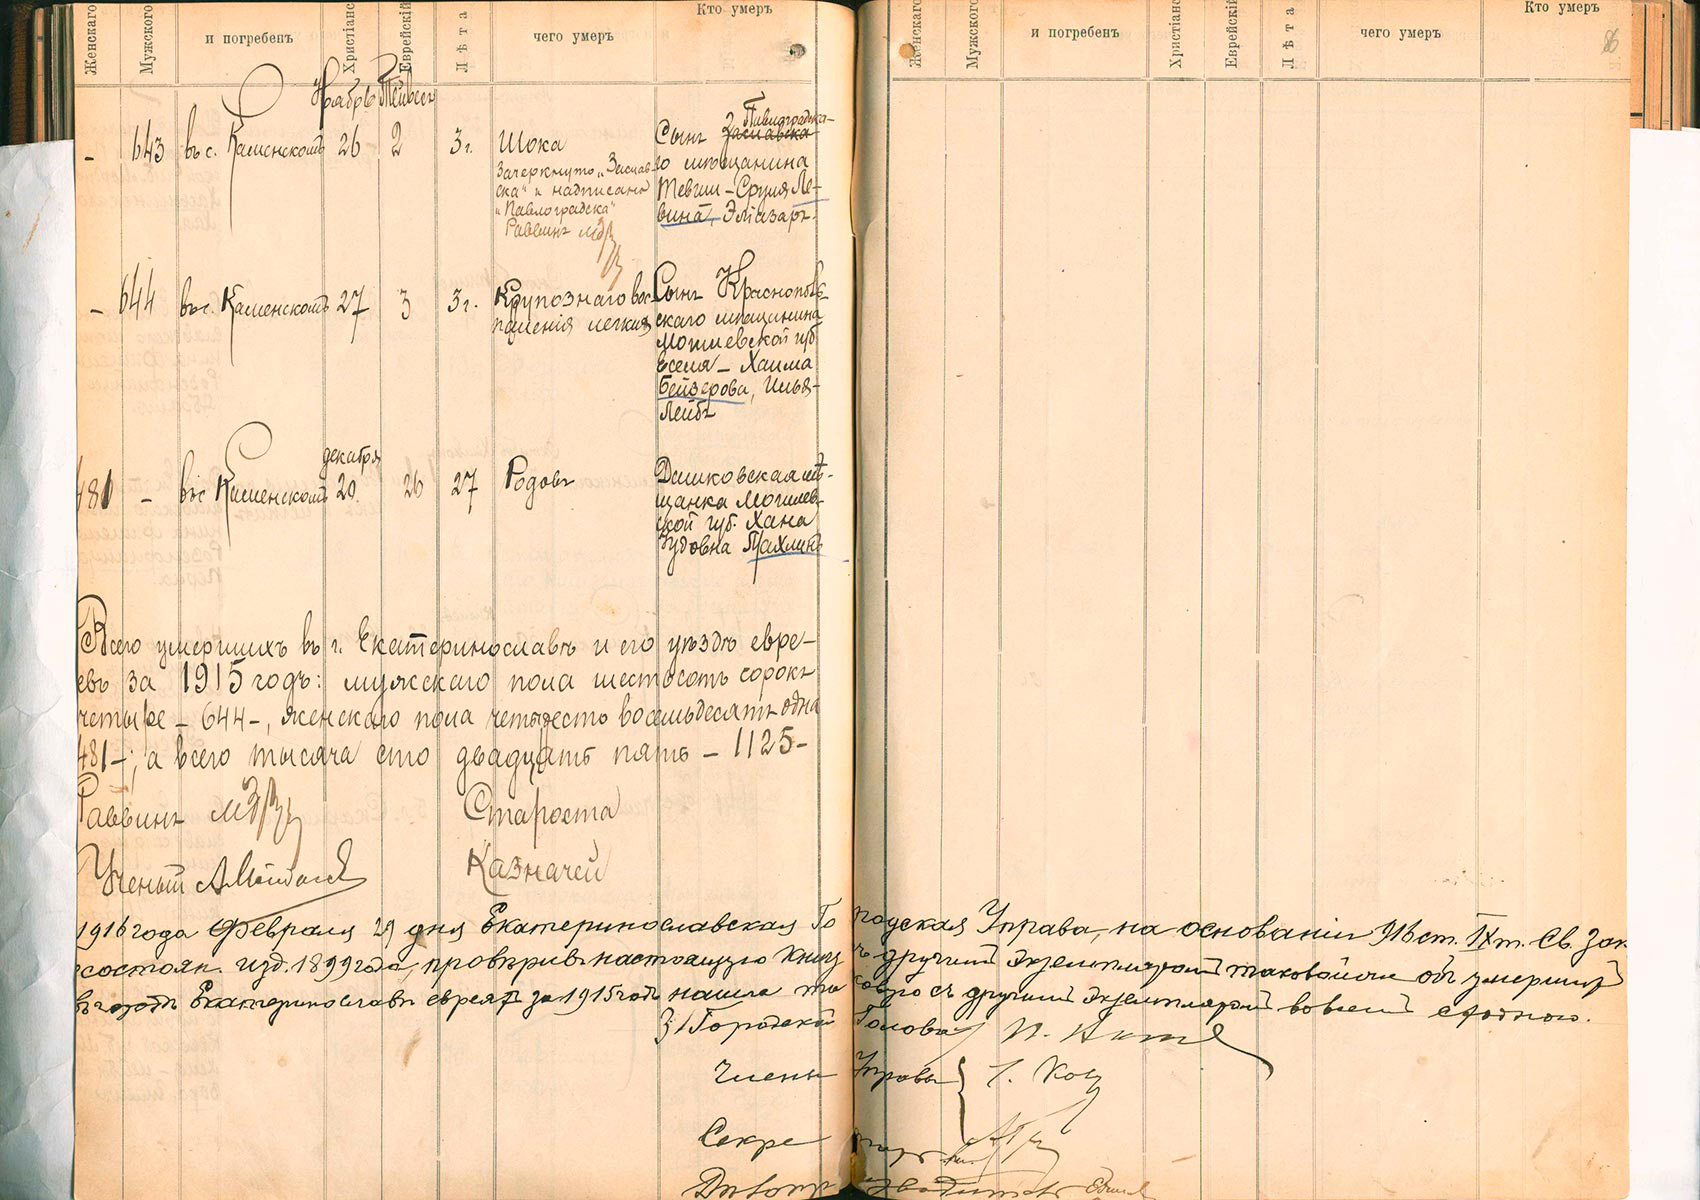 Женскаго Мужского и погребенъ Христіанс Еврейскій Лѣта чего умеръ Кто умеръ
Женскаго Мужского и погребенъ Христіанс Еврейскій Лѣта чего умеръ Кто умеръ
86
Ноябрь Тейвесъ
- 643 въ с. Каменскомъ 26 2 3 г. Шока
Зачеркнуто „Заслав-
ска" и надписано
„Павлоградска"
Раввинъ
Павлоградска-
Сынъ Заславска-
го мѣщанина
Тевши-Сруля Ле-
вина, Эліазаръ.
- 644 въ с. Каменскомъ 27 3 3 г. Крупознаго вос-
паленія легкихъ
Сынъ Краснополь-
скаго мѣщанина
Могилевской губ.
Евселя-Хаима
Бейзерова, Илья-
Лейбъ
декабря
481 - въ с Каменскомъ 20 26 27 Родовъ
Дашковская мѣ-
щанка Могилев-
ской губ. Хана
Зудовна Пахлинъ
Всего умершихъ въ г. Екатеринославѣ и его уѣздѣ евре-
евъ за 1915 годъ: мужскаго пола шестьсотъ сорокъ
четыре - 644 -, женскаго пола четыреста восемьдесятъ одна
481 -; а всего тысяча сто двадцать пять - 1125 -
Раввинъ Староста
Ученый Казначей
1916 года Февраля 29 дня Екатеринославская Городская Управа, на основаніи 916 ст. IX т. Св. Зак.
о состоян. изд. 1899 года, провѣривъ настоящую книгу съ другимъ экземпляромъ таковой же объ умершихъ
въ городѣ Екатеринославѣ евреяхъ за 1915 годъ нашла таковую съ другимъ экземпляромъ во всемъ сходною.
З/ Городской Голова
Члены Управы
Секретарь